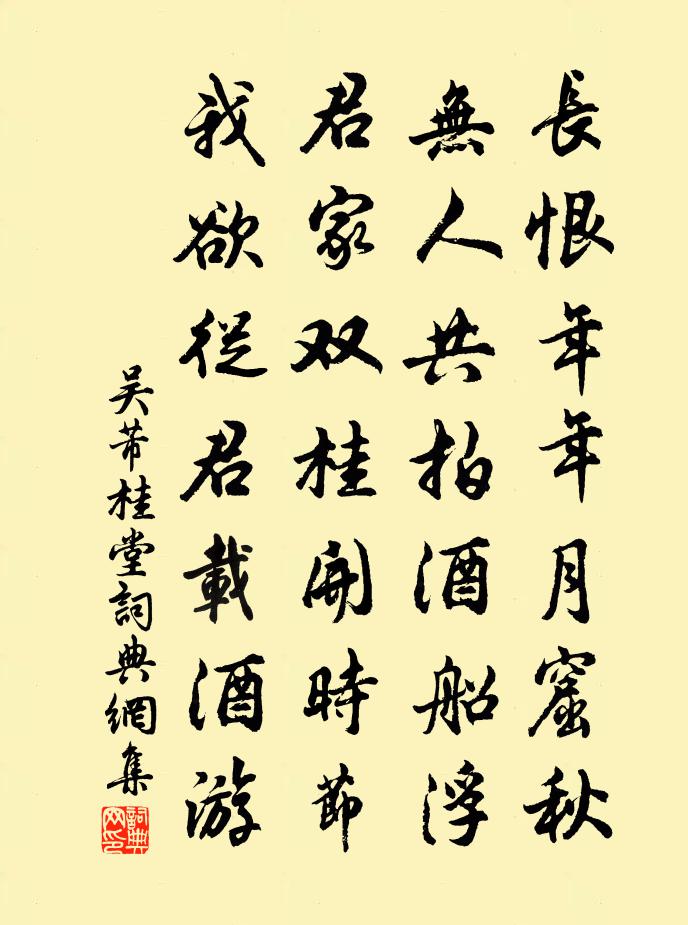 長恨年年月窟秋
無人共拍酒船浮
君家双桂開時節
我欲從君載酒游
吴芾桂堂詞典網集
詞典網印